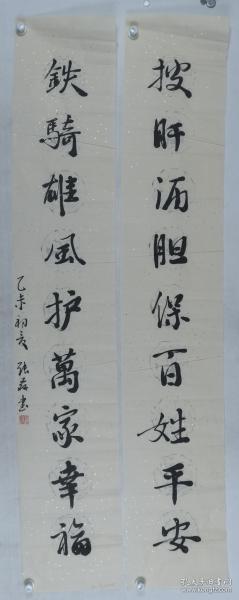 披肝沥胆保百姓平安
鉄騎雄风护萬家幸福
乙未初夏 張森书